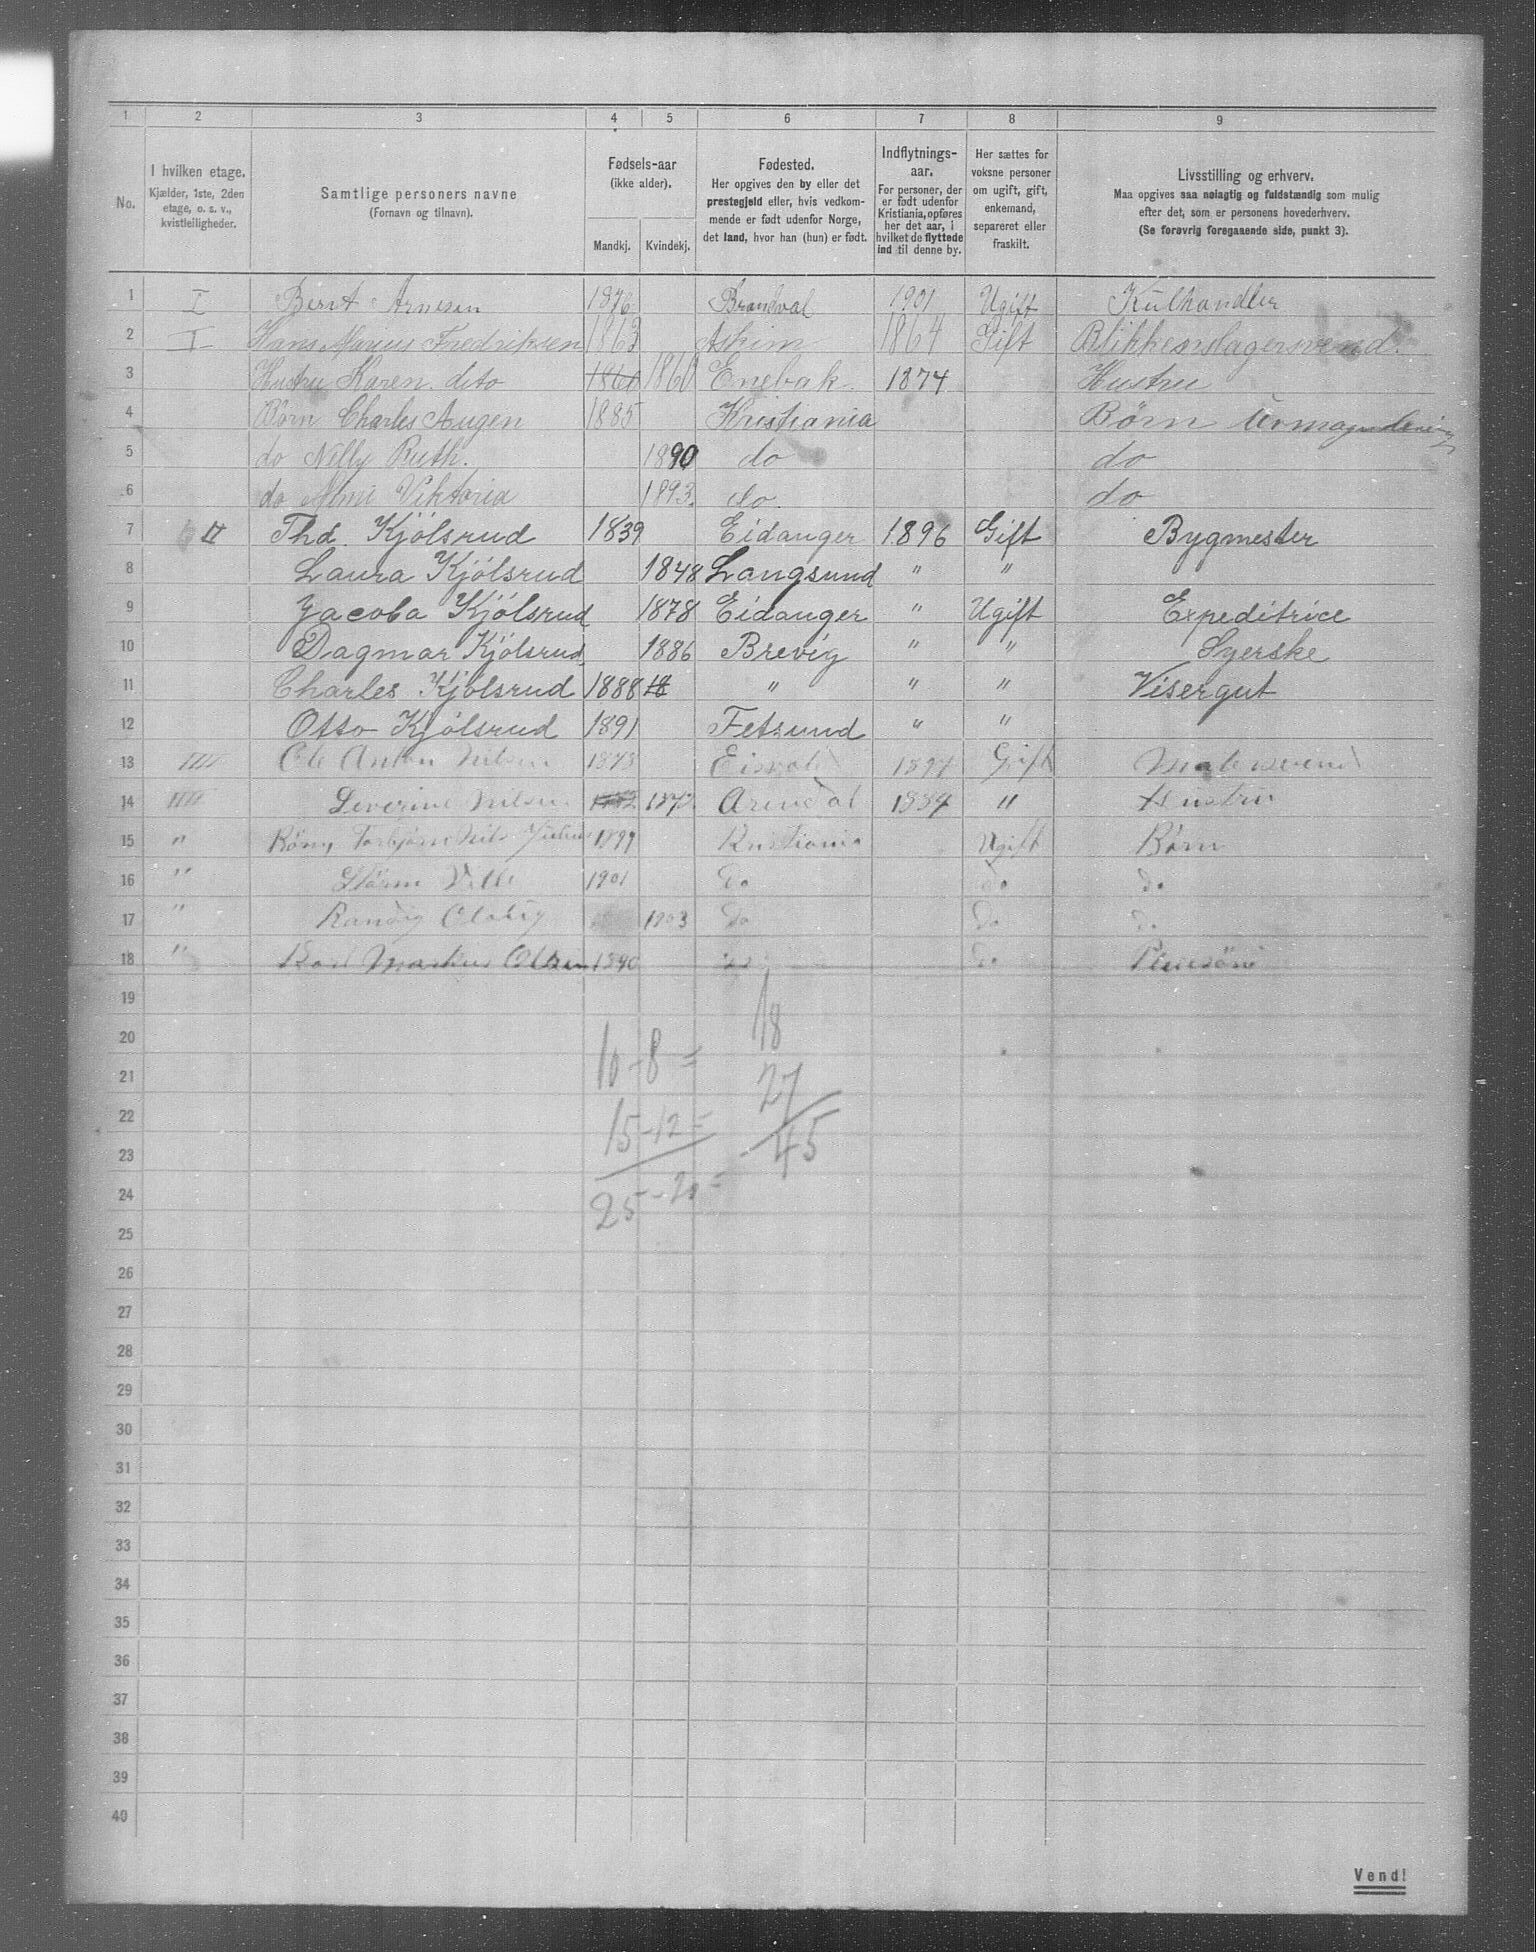 1 2 3 4 5 6 7 8 9
No.
I hvilken etage.
Kjælder, 1ste, 2den
etage, o. s. v.,
kvistleiligheder.
Samtlige personers navne
(Fornavn og tilnavn).
Fødsels-aar
(ikke alder).
Mandkj. Kvindekj.
Fødested.
Her opgives den by eller det
prestegjeld eller, hvis vedkom-
mende er født udenfor Norge,
det land, hvor han (hun) er født.
Indflytnings-
aar.
For personer, der
er født udenfor
Kristiania, opføres
her det aar, i
hvilket de flyttede
ind til denne by.
Her sættes for
voksne personer
om ugift, gift,
enkemand,
separeret eller
fraskilt.
Livsstilling og erhverv.
Maa opgives saa nøiagtig og fuldstændig som mulig
efter det, som er personens hovederhverv.
(Se forøvrig foregaaende side, punkt 3).
1 I Bernt Arnesen 1876 Brandval 1901 Ugift Kulhandler
2 I Hans Marius Fredriksen 1863 Askim 1864 Gift Blikkenslagersvend.
3 Hustru Karen deto 1860 1860 Enebak. 1874 Hustru
4 Børn Charles Augen 1885 Kristiania Børn
5 do Nelly Ruth. 1890 do do
6 do Almi Viktoria 1893. do. do
7 II Thd. Kjölsrud 1839 Eidanger 1896 Gift Bygmester
8 Laura Kjölsrud 1848 Langsund " "
9 Jacoba Kjölsrud 1878 Eidanger " Ugift Expeditrice
10 Dagmar Kjölsrud 1886 Brevig " " Syerske
11 Charles Kjölsrud 1888 18 " " " Visergut
12 Otto Kjölsrud 1891 Fetsund " "
13 IIII Ole Anton Nilsen 1873 Eisvold Gift Malersvend
14 IIII Severine Nilsen Arendal 1884 " Hustru
15 " Børn, Torbjørn Nils Julius 1899 Kristiania Ugift Børn
16 " 1901 do do do
17 " Randig 1903 do do do
18 " Karl Markus Olsen 1890 do do Pleiesøn
19
20
21
22
23
24
25
26
27
28
29
30
31
32
33
34
35
36
37
38
39
40
10 - 8 = 18
15 - 12 = 27
25 - 20 = 45
Vend!